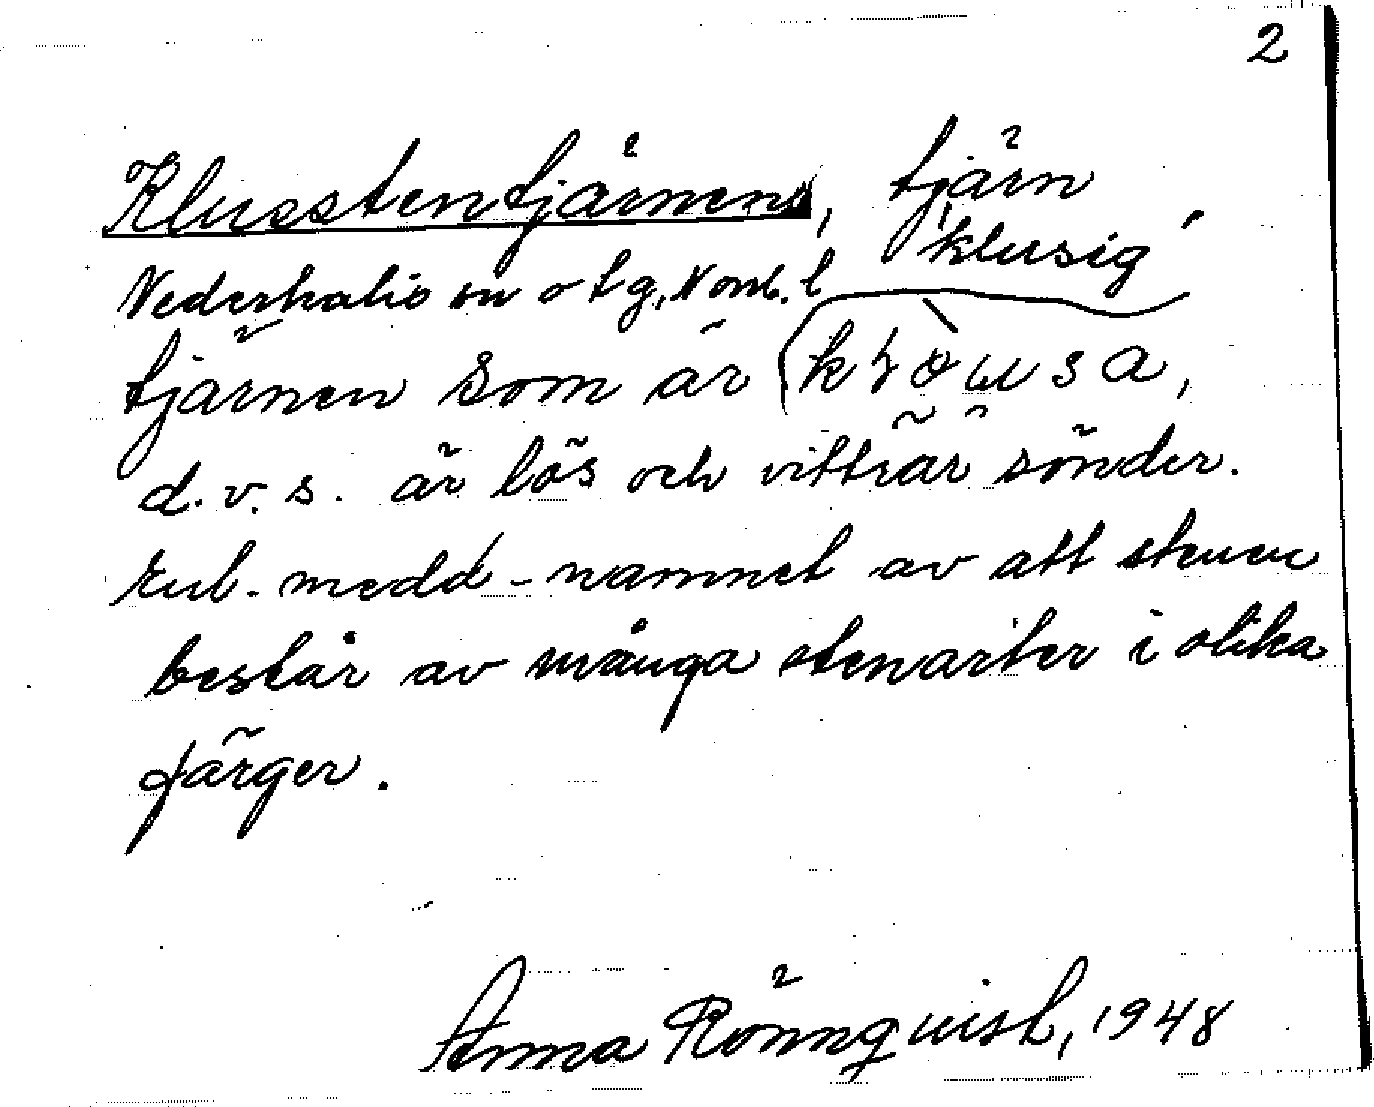 2
Klusstentjärnen, tjärn
"klusig"
Nederkalix sn o tg, Norrb. l
tjärnen som är
d.v.s. är lös och vittrar sönder.
medd. namnet av att stenen
består av många stenarter i olika
färger.
Anna Rönnqvist, 1948